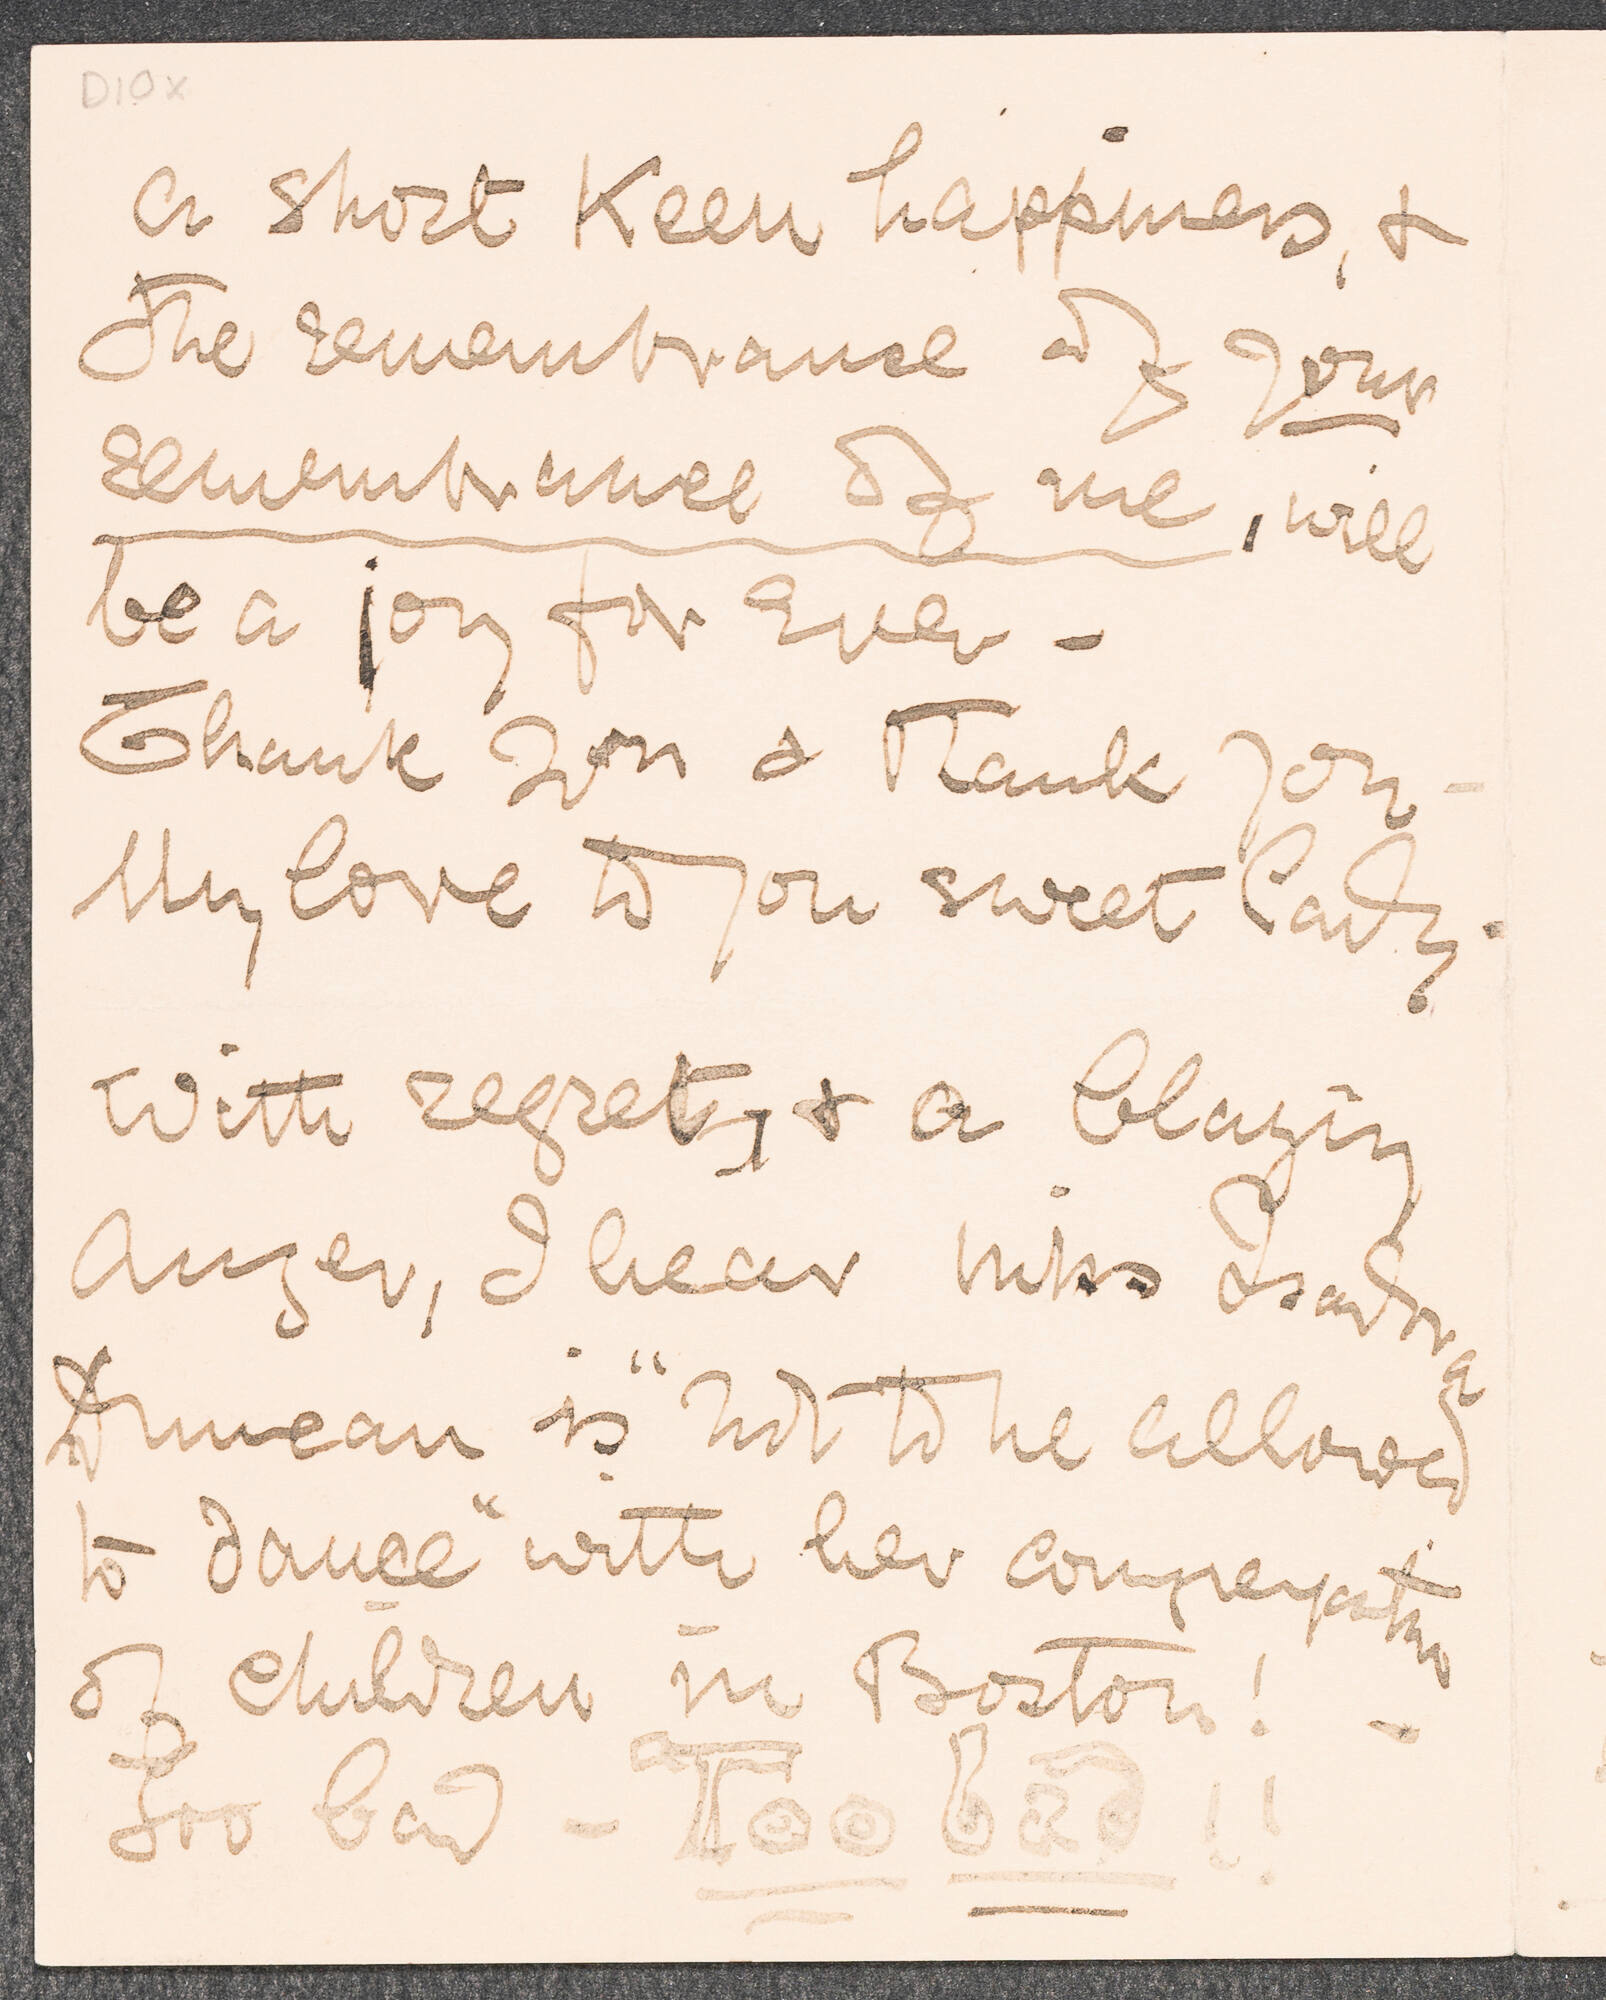 D10x
a short Keen happiness, &
the remembrance of your
remembrance of me, will
be a joy for ever -
Thank you & thank you -
My love to you sweet Lady.
with regret, & a blazing
anger, I hear miss Isadora
Duncan is "not to be allowed
to dance" with her congregation
of children in Boston! -
Too bad - Too bad !!